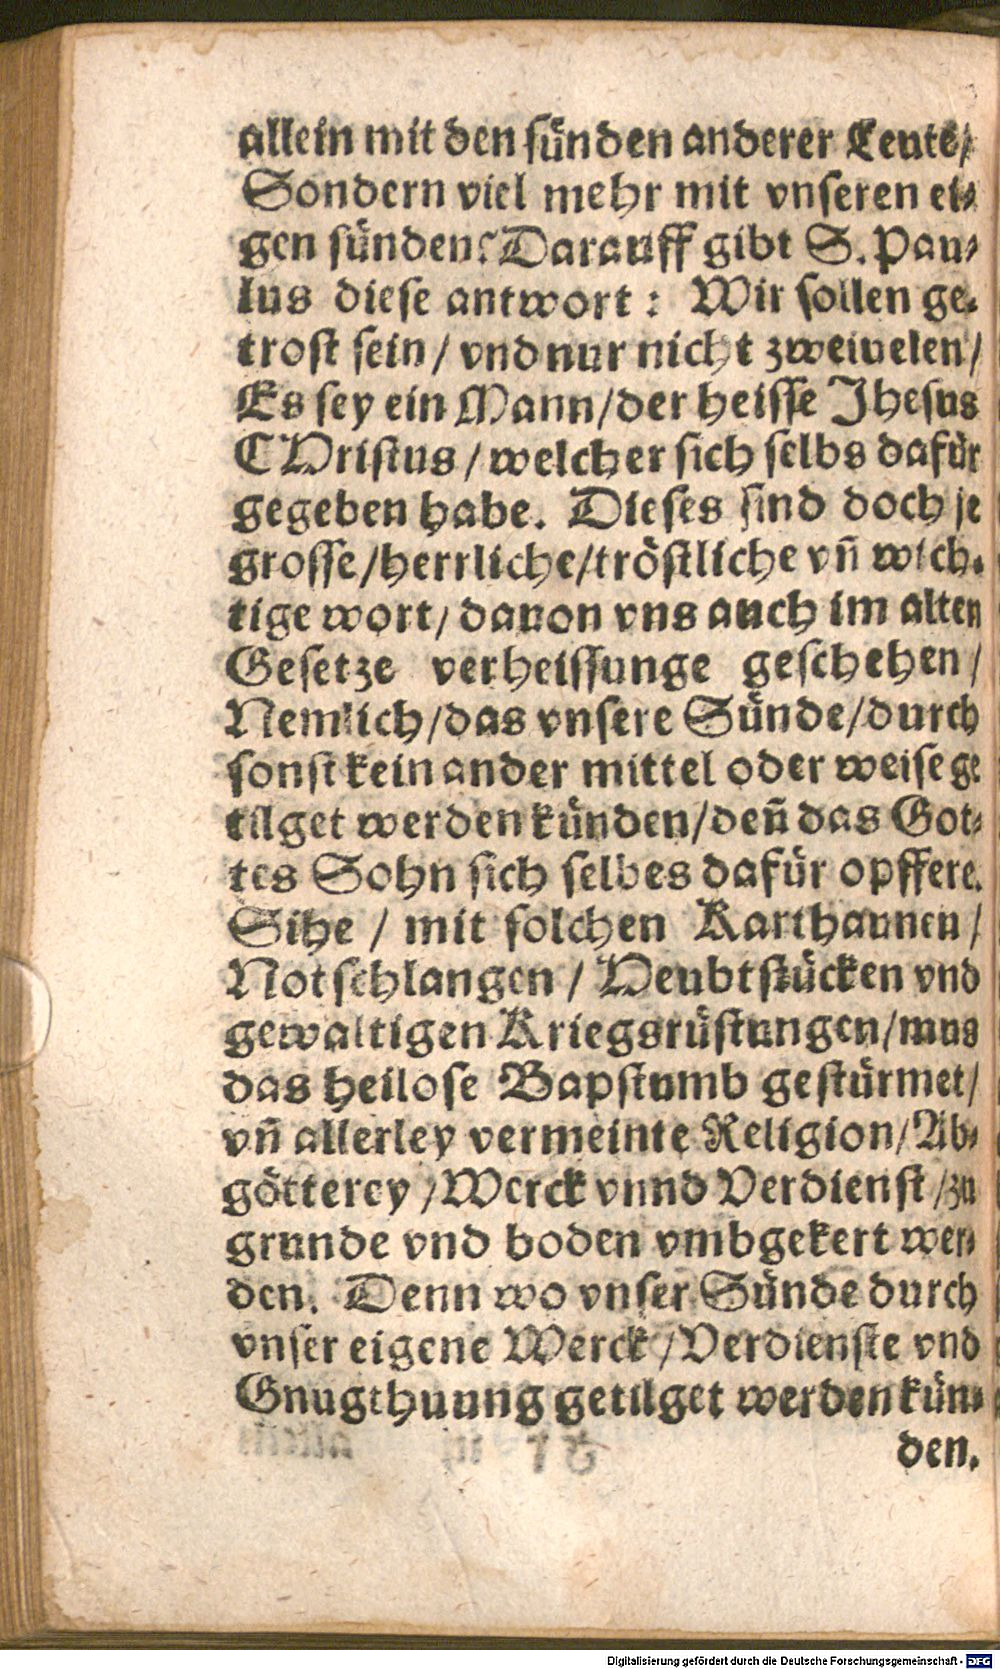 allein mit den sünden anderer Leute/
Sondern viel mehr mit vnseren ei⸗
gen sünden? Darauff gibt S. Pau⸗
lus diese antwort: Wir sollen ge⸗
trost sein/ vnd nur nicht zweiuelen/
Es sey ein Mann/ der heisse Jhesus
CHristus/ welcher sich selbs dafür
gegeben habe. Dieses sind doch je
grosse/ herrliche/ tröstliche vn̄ wich⸗
tige wort/ dauon vns auch im alten
Gesetze verheissunge geschehen/
Nemlich/ das vnsere Sünde/ durch
sonst kein ander mittel oder weise ge
tilget werden künden/ den̄ das Got⸗
tes Sohn sich selbes dafür opffere.
Sihe/ mit solchen Karthaunen/
Notschlangen/ Heubtstücken vnd
gewaltigen Kriegsrüstungen/ mus
das heilose Bapstumb gestürmet/
vn̄ allerley vermeinte Religion/ Ab⸗
götterey/ Werck vnnd Verdienst/ zu
grunde vnd boden vmbgekert wer⸗
den. Denn wo vnser Sünde durch
vnser eigene Werck/ Verdienste vnd
Gnugthuung getilget werden kün⸗
den.
Digitalisierung gefördert durch die Deutsche Forschungsgemeinschaft - DFG